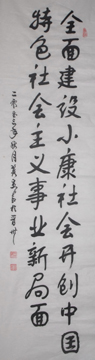 全面建设小康社会开创中国
特色社会主义事业新局面